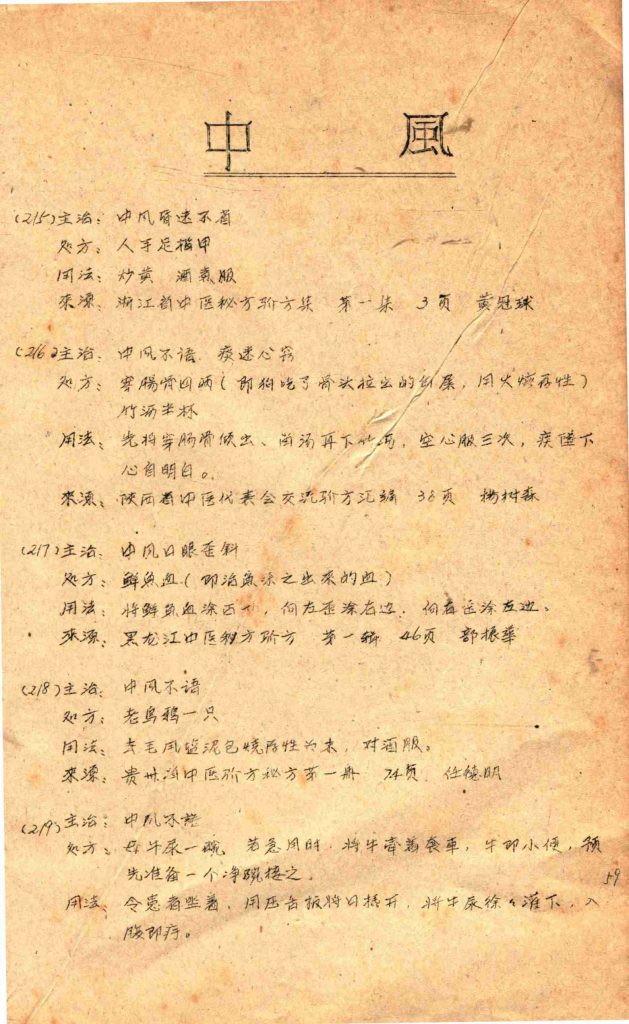 中風
(215)主治：中风昏迷不省
处方：人手足指甲
用法：炒黄 酒煮服
来源：浙江省中医秘方验方集 第一集 3页 黄冠球
(216)主治：中风不语 痰迷心窍
处方：穿腸骨四两（即狗吃了骨头拉出的白屎，用火煅存性）
竹沥半杯
用法：先将穿肠骨倾出、前汤再下竹沥，空心服三次，痰僵下
心自明白。
来源：陕西省中医代表会交流验方汇编 38页 杨树森
(217)主治：中风口眼歪斜
处方：鲜魚血（即治魚流之出来的血）
用法：将鲜魚血涂面ナ，向左歪涂右边，向右歪涂左边。
来源：黑龙江中医秘方验方 第一辑 46页 郭振華
(218)主治：中风不语
处方：老鸟鸦一只
用法：去毛用盐泥包烧存性为末，对酒服。
来源：贵州省中医验方秘方第一册 74页 任德明
(219)主治：中风不語
处方：母牛尿一碗 若急用时，将牛牵着食草，牛即小便，预
先准备一个净碗接之。
用法：令患者坐着，用压舌板将口撬开，将牛尿徐々灌下，入
腹即疗。
59